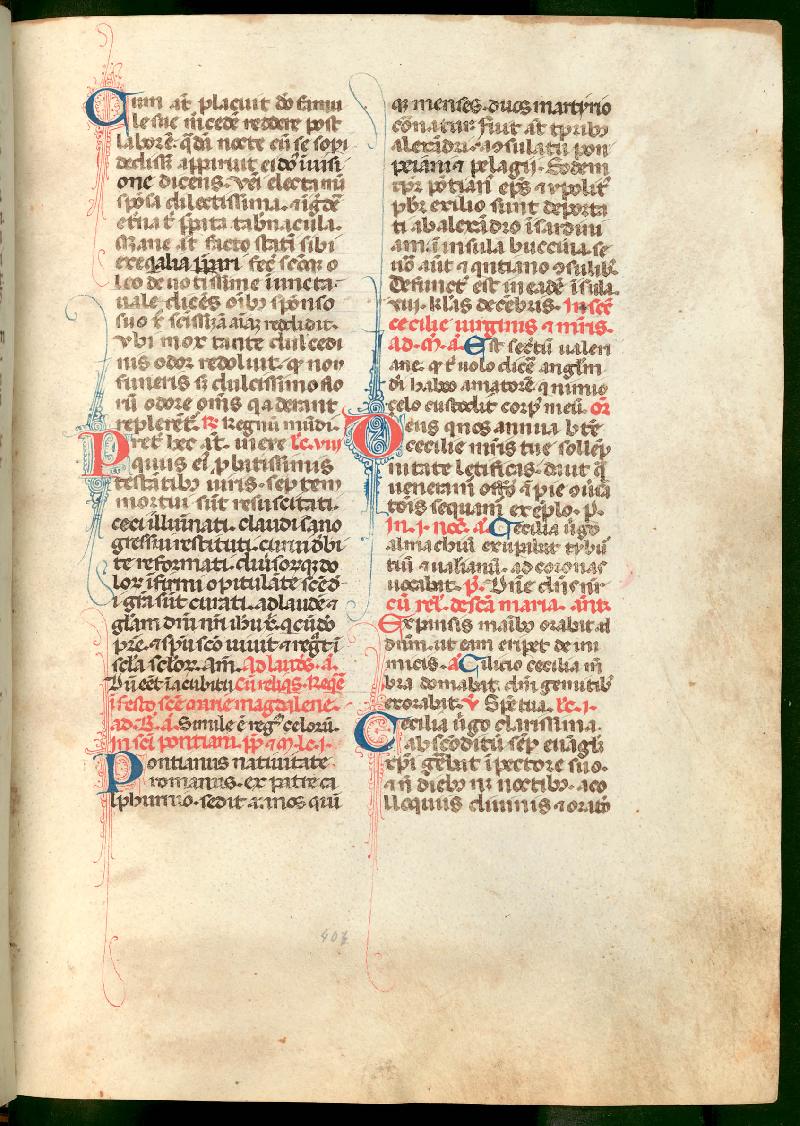 Cum at placuit do famu
le sue mcedē reddere post
laborē. qdā nocte cū se sopi
dedissz appiruit ei dn̄s i uisi
one dicens. veī electa mā
sponsa dilectissima. ⁊ īgdē
etna t̄ spata tabnacula.
Mane at̄ facto statī sibi
exeqalia ppari fec̄
leo de notissime iuncta
uale dicēs oīb sponso
suo
vbi mox tante dulcedi
nis odor redoluit. q nō
funeris s; dulcissimo flo
rū odore om̄s q aderant
replerēt. R Regnū mūdi.
Pret hec at. lc. viii
quus ei pbatissimis
testatibo uiris. septem
mortui sūt resuscitati.
ceci illuīnati. claudi sano
gressui restituti. curui debi
te reformati. diuisorq; do
lor īfirmi opitulāte scēd
i gr̄a sūt curati. ad laudē ⁊
gl̄am dn̄i nr̄i ihu x̄. q cū dō
pre. ⁊ spū sc̄o uiuit ⁊ regt ī
scl̄a scl̄or. Am̄. Ad laudes. a.
Dū eēt ī acubitu cū reliqs. Reqē
ī festo sc̄e marie magdalene.
ad. B. a. Simile ē regᵘ celorū.
In sc̄i pontiani. pp ⁊ m̄. lc. i.
Pontianus natiuitate
romanus. ex patre ca
lphurnio. sedit annos quī
q; menses. duos martyrio
cōnatur. fuit at tpribo
alexādri. ⁊ ꝯsulatu pon
peiani ⁊ pelagii. Eodem
tpr pōtian eps ⁊ ypolit
pbr exilio sunt deporta
ti ab alexādro ī sardini
am. ī insula buccina. se
uo aut ⁊ qntiano ꝯsulib.
defunct est in eadē īsula.
xiii. kl̄as decēbris. In sc̄e
cecilie uirginis ⁊ m̄ris.
ad. m. a. Est secretū ualeri
ane. q t̄ uolo dicē anglm
di habeo amatorē q nimio
zelo custodit corp meū. or̄
Deus qnos annua btē
cecilie mris tue sollēp
nitate letificas. da ut q
ueneram offō ⁊ pie ꝯuisa
tōis sequam exēplo. p.
In. i. noc. a. Cecilia ūgo
almachiū exupabat tybu
tiū ⁊ ualianū. ad coronas
uocabat. p. Dn̄e dn̄s nr̄
cū rel. de scā maria. ant.
Expansis maībo orabat ad
dnm. ut eam eripet de ini
micis. a Cilicio cecilia m̄
bra domabat. dm̄ gemitib
exorabat. v Spetua. lc. i.
Cecilia ūgo clarissima.
absconditū sēp euāgli
xpi gebat ī pectore suo.
⁊ n̄ diebo n; noctibo. a co
lloquiis diuinis ⁊ oratō
407